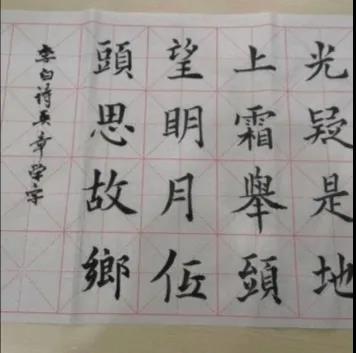 光疑是地
上霜舉頭
望明月低
頭思故鄉
李白詩